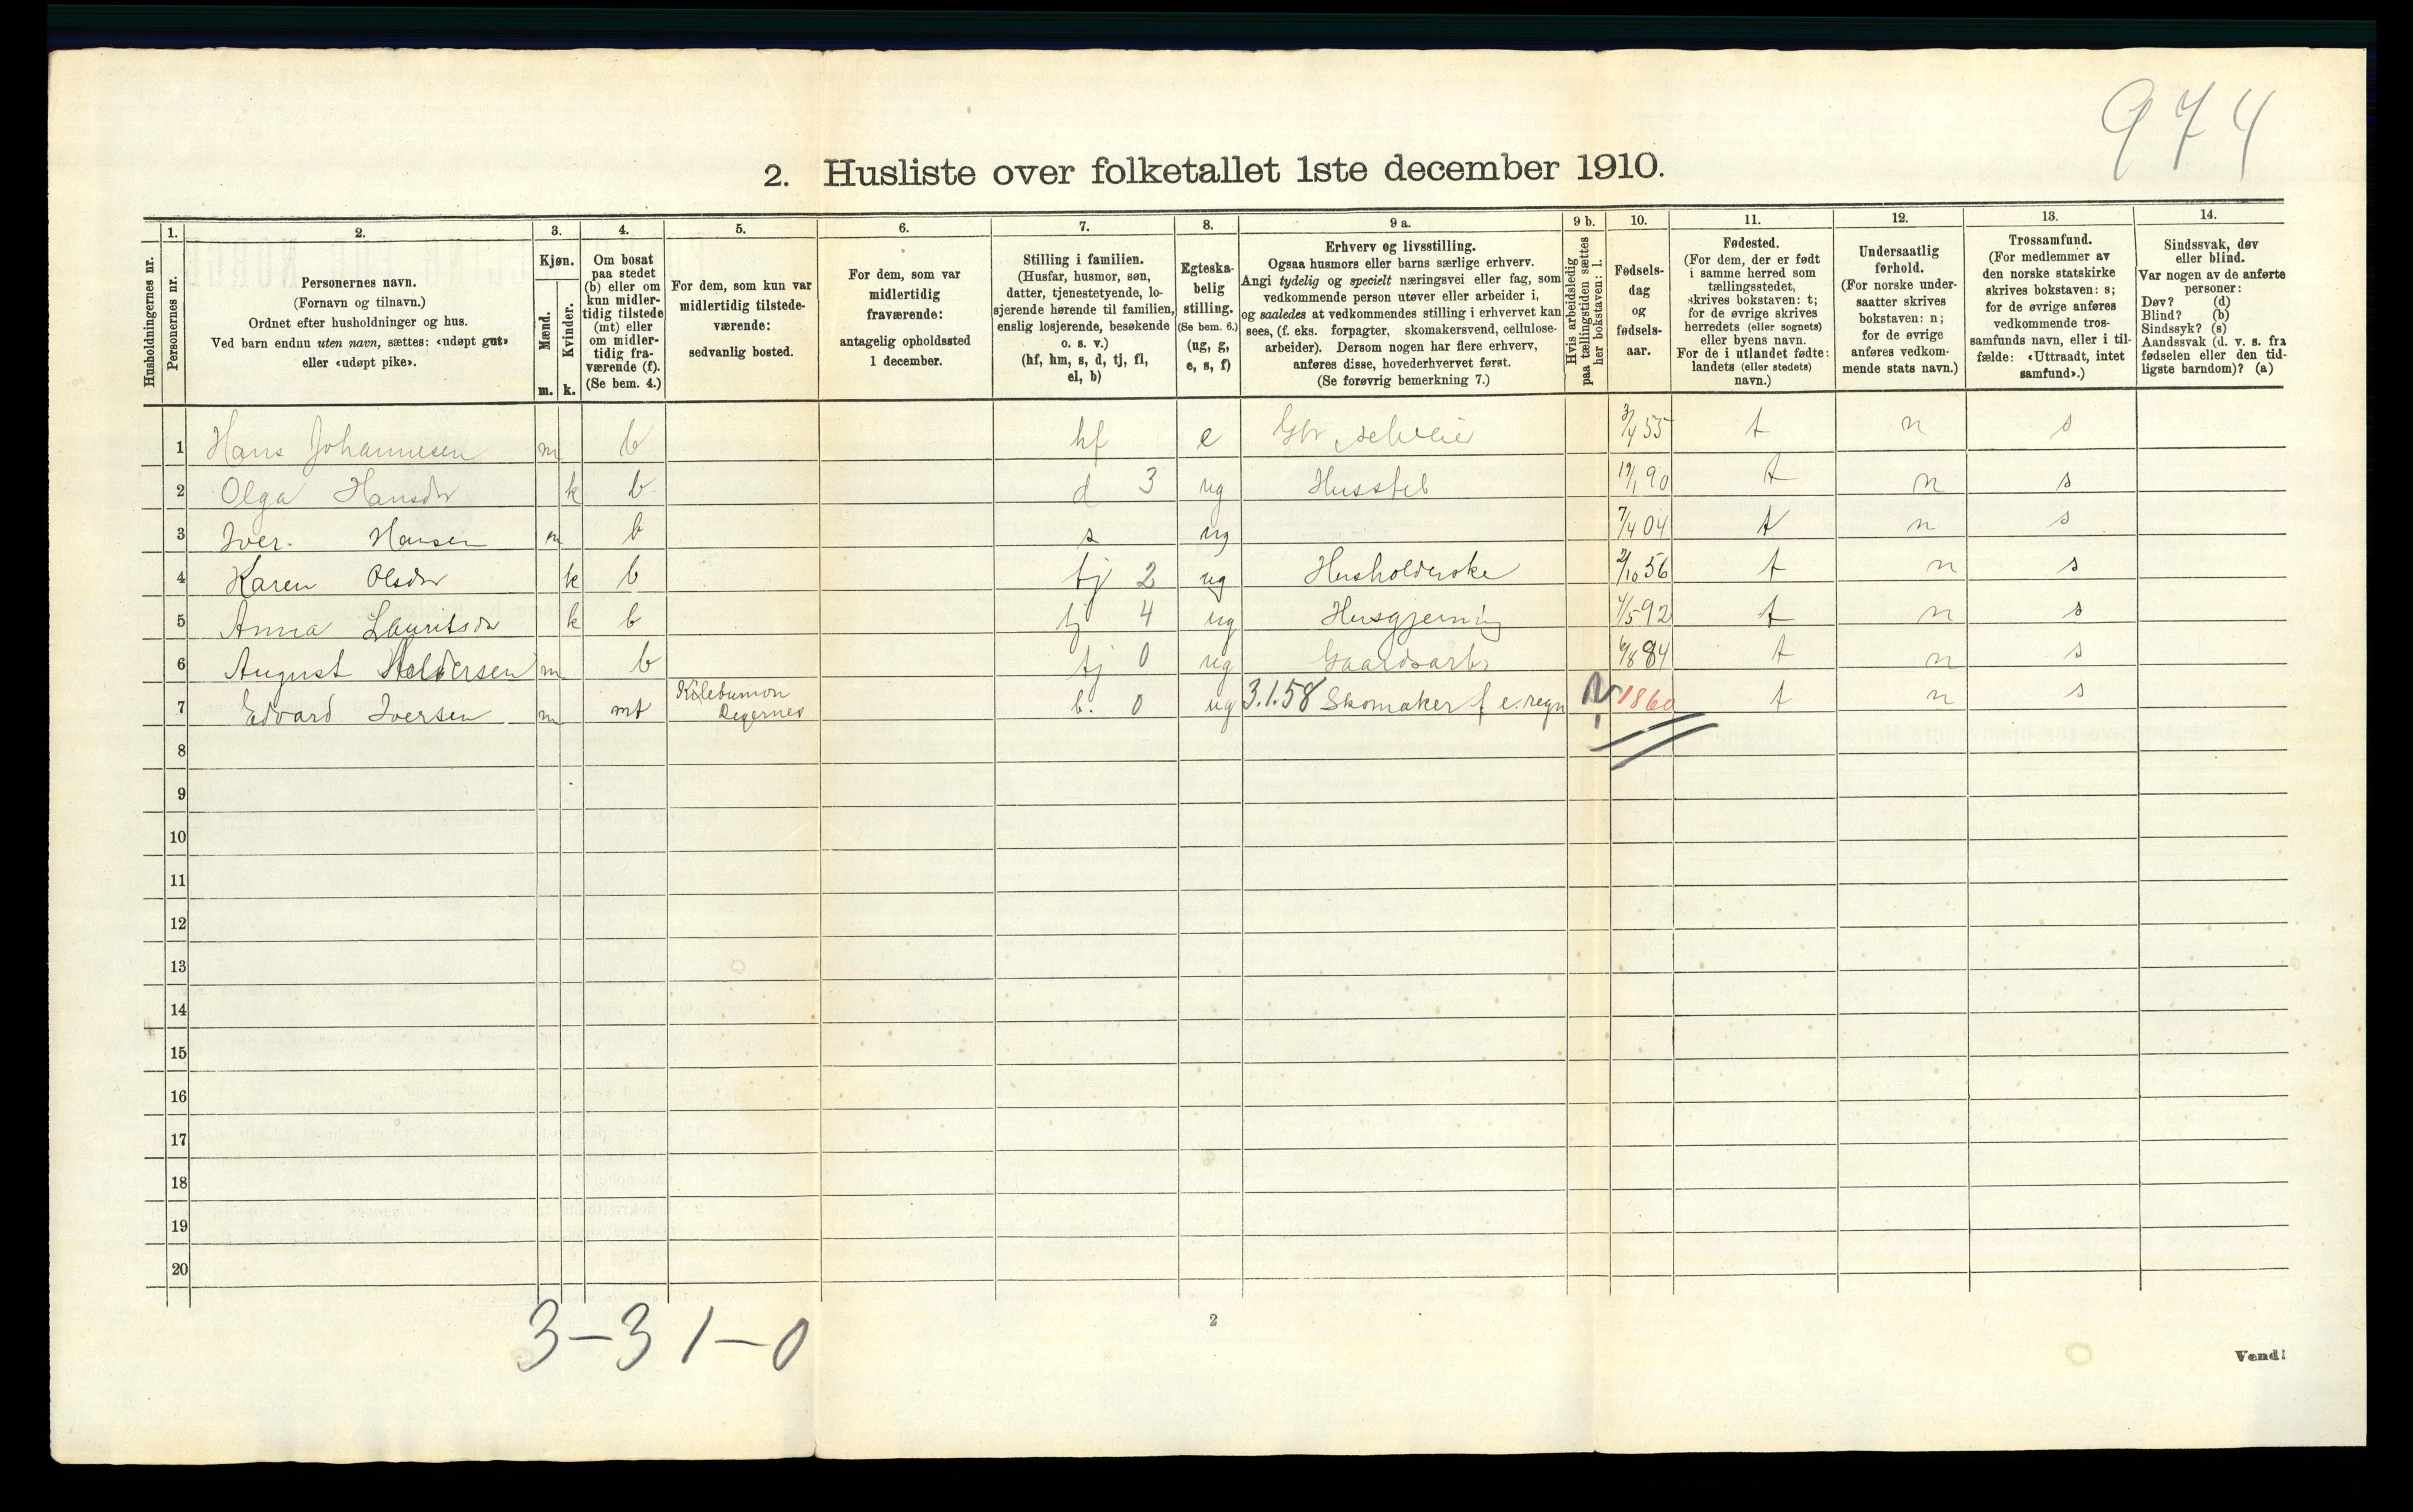 974
2. Husliste over folketallet 1ste december 1910.
Husholdningernes nr.
1.
Personernes nr.
2.
Personernes navn.
(Fornavn og tilnavn.)
Ordnet efter husholdninger og hus.
Ved barn endnu uten navn, sættes: «udøpt gut»
eller «udøpt pike».
3.
Kjøn.
Mænd.
Kvinder.
m. k.
4.
Om bosat
paa stedet
(b) eller om
kun midler-
tidig tilstede
(mt) eller
om midler-
tidig fra-
værende (f).
(Se bem. 4.)
5.
For dem, som kun var
midlertidig tilstede-
værende:
sedvanlig bosted.
6.
For dem, som var
midlertidig
fraværende:
antagelig opholdssted
1 december.
7.
Stilling i familien.
(Husfar, husmor, søn,
datter, tjenestetyende, lo-
sjerende hørende til familien,
enslig losjerende, besøkende
o. s. v.)
(hf, hm, s, d, tj, fl,
el, b)
8.
Egteska-
belig
stilling.
(Se bem. 6.)
(ug, g,
e, s, f)
9 a.
Erhverv og livsstilling.
Ogsaa husmors eller barns særlige erhverv.
Angi tydelig og specielt næringsvei eller fag, som
vedkommende person utøver eller arbeider i,
og saaledes at vedkommendes stilling i erhvervet kan
sees, (f. eks. forpagter, skomakersvend, cellulose-
arbeider). Dersom nogen har flere erhverv,
anføres disse, hovederhvervet først.
(Se forøvrig bemerkning 7.)
9 b.
Hvis arbeidsledig
paa tællingstiden sættes
her bokstaven: l.
10.
Fødsels-
dag
og
fødsels-
aar.
11.
Fødested.
(For dem, der er født
i samme herred som
tællingsstedet,
skrives bokstaven: t;
for de øvrige skrives
herredets (eller sognets)
eller byens navn.
For de i utlandet fødte:
landets (eller stedets)
navn.)
12.
Undersaatlig
forhold.
(For norske under-
saatter skrives
bokstaven: n;
for de øvrige
anføres vedkom-
mende stats navn.)
13.
Trossamfund.
(For medlemmer av
den norske statskirke
skrives bokstaven: s;
for de øvrige anføres
vedkommende tros-
samfunds navn, eller i til-
fælde: «Uttraadt, intet
samfund».)
14.
Sindssvak, døv
eller blind.
Var nogen av de anførte
personer:
Døv? (d)
Blind? (b)
Sindssyk? (s)
Aandssvak (d. v. s. fra
fødselen eller den tid-
ligste barndom)? (a)
1 Hans Johannesen m b hf e Gbr selveier 3/4 55 t n s
2 Olga Hansdr k b d 3 ug Husstel 19/1 90 t n s
3 Iver Hansen m b s ug 7/4 04 t n s
4 Karen Olsdr k b tj 2 ug Husholderske 2/10 56 t n s
5 Anna Lauritsdr k b tj 4 ug Husgjerning 4/5 92 t n s
6 August Haldorsen m b tj 0 ug Gaardsarb 6/8 84 t n s
7 Edvard Iversen m mt b. 0 ug 3.1.58 Skomaker f e. regn ? 1860 t n s
8
9
10
11
12
13
14
15
16
17
18
19
20
3-3 1-0
2
Vend!